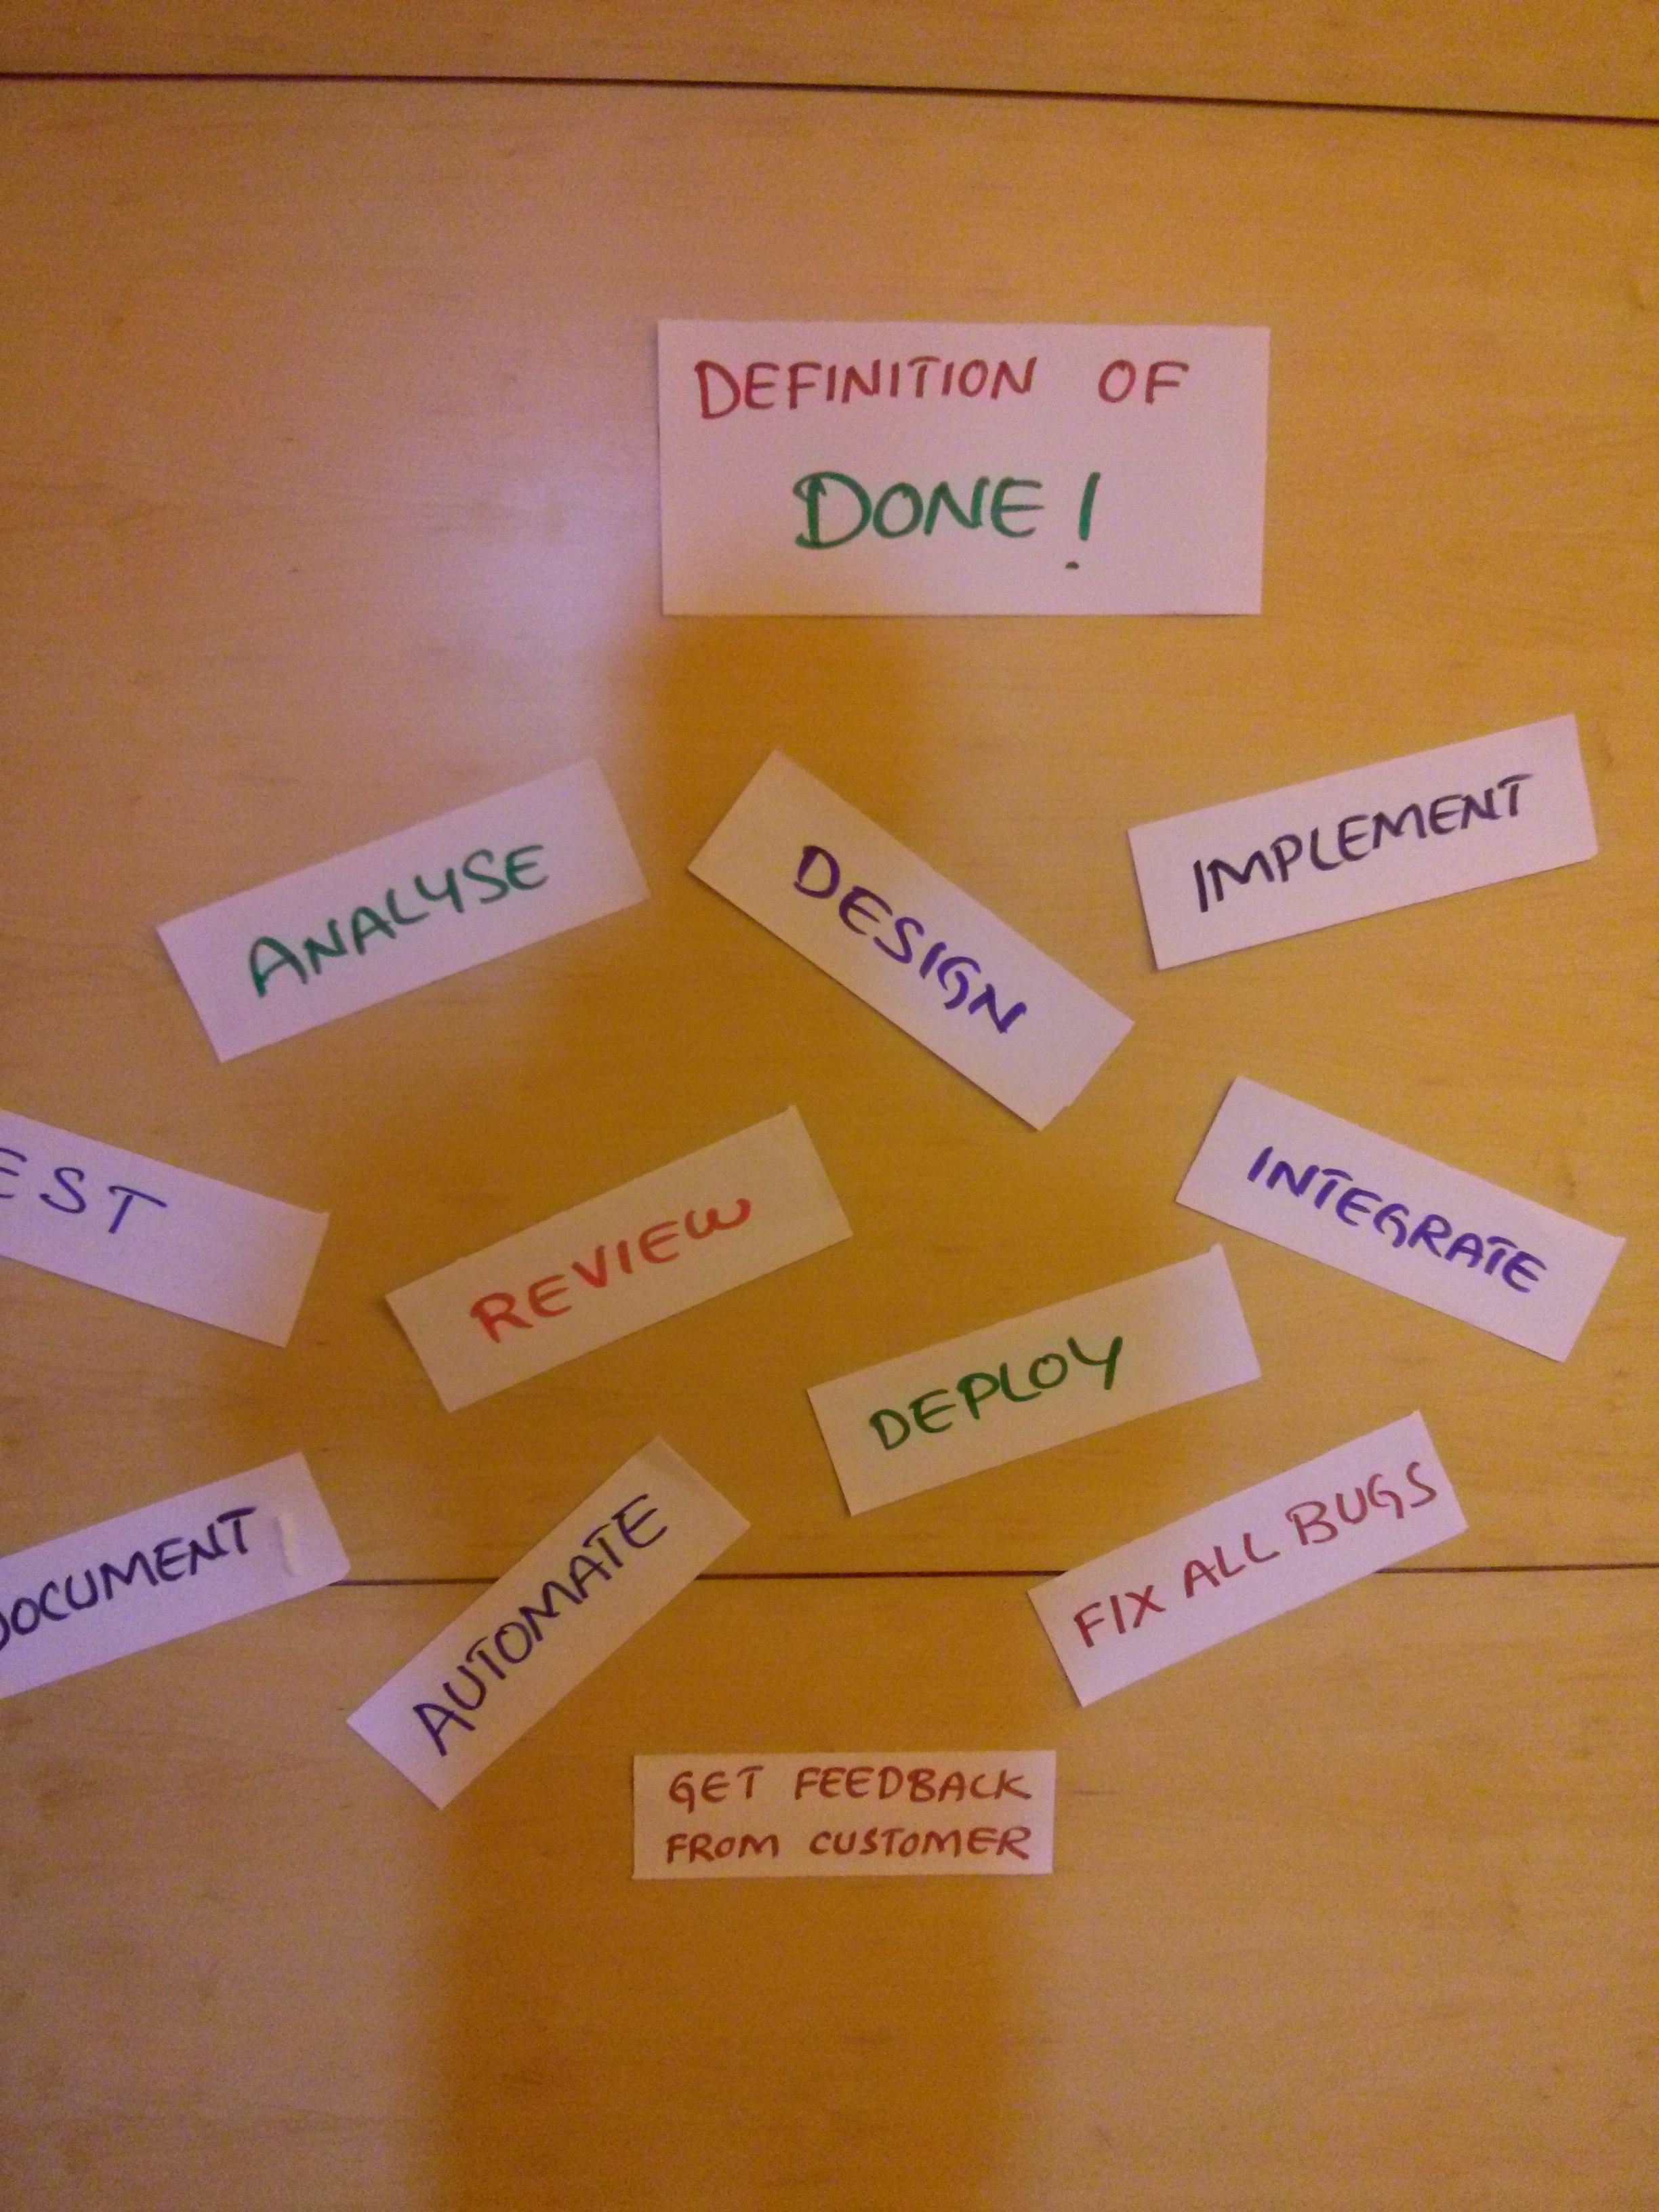 DEFINITION OF
DONE!
ANALYSE
DESIGN
IMPLEMENT
EST
REVIEW
INTEGRATE
DEPLOY
DOCUMENT
AUTOMATE
FIX ALL BUGS
GET FEEDBACK
FROM CUSTOMER